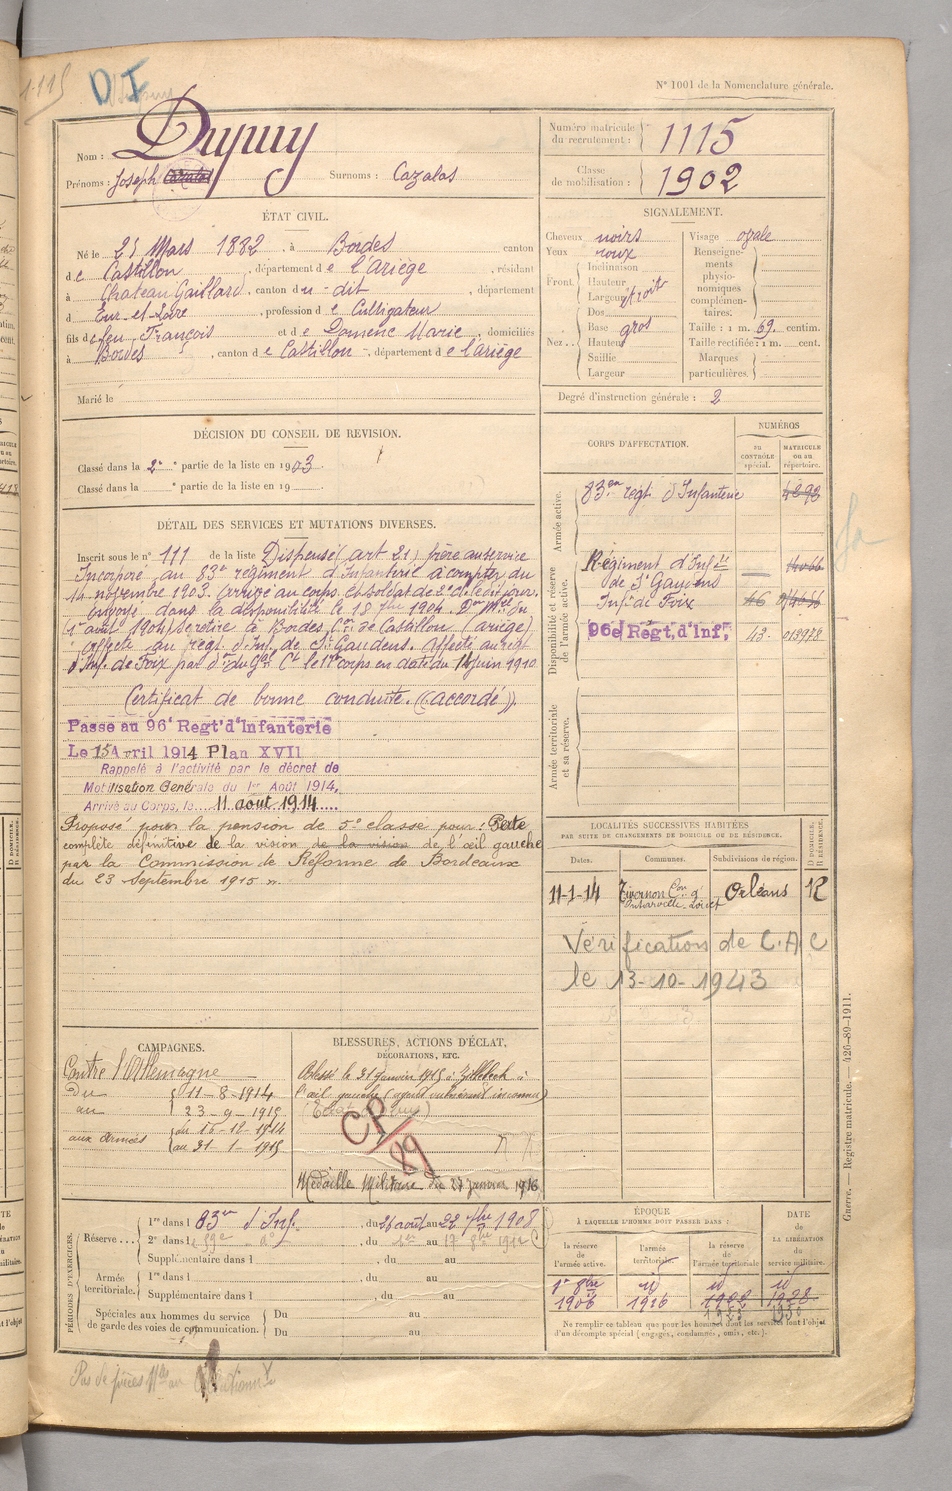 1115
D I
N° 1001 de la Nomenclature générale.
Nom : Dupuy
Prénoms : Joseph Cazalas Surnoms : Cazalas
Numéro matricule du recrutement : 1115
Classe de mobilisation : 1902
ÉTAT CIVIL.
Né le 25 Mars 1882, à Bordes canton
de Castillon, département de l'Ariège, résidant
à Chateau Gaillard, canton du -dit, département
d Eur-et-Loire, profession de Cultigateur
fils de feu François et de Domenc Marie, domiciliés
à Bordes, canton de Castillon, département de l'ariège
Marié le
SIGNALEMENT.
Cheveux noirs
Yeux roux
Front. Inclinaison
Hauteur
Largeur étroit
Nez .. Dos
Base gros
Hauteur
Saillie
Largeur
Visage ovale
Renseignements physionomiques complémentaires:
Taille : 1 m. 69. centim.
Taille rectifiée : 1 m. cent.
Marques particulières.
Degré d'instruction générale : 2
DÉCISION DU CONSEIL DE REVISION.
Classé dans la 2e partie de la liste en 1903.
Classé dans la e partie de la liste en 19
DÉTAIL DES SERVICES ET MUTATIONS DIVERSES.
Inscrit sous le n° 111 de la liste Dispensé (art 21) frère au service
Incorporé au 83e régiment d'Infanterie à compter du
14 novembre 1903. Arrivé au corps et soldat de 2e cl. le dit jour.
Envoyé dans la disponibilité le 18 7bre 1904.
1er avril 1904) se retire à Bordes Con de Castillon (ariège)
affecté au régt d'Inf. de St Gaudens. affecté au régt
d'Inf. de Foix par dn du Gal Ct le 17e corps en date du 14 juin 1910
Certificat de bonne conduite. (accordé).
Passé au 96e Regt d'Infanterie
Le 15 Avril 1914 Plan XVII
Rappelé à l'activité par le décret de
Mobilisation Générale du 1er Août 1914,
Arrivé au Corps, le 11 août 1914
Proposé pour la pension de 5e classe pour : Perte
complète définitive de la vision de la vision de l'œil gauche
par la Commission de Réforme de Bordeaux
du 23 Septembre 1915
CORPS D'AFFECTATION.
NUMÉROS
AU CONTRÔLE spécial.
MATRICULE ou au répertoire.
Armée active.
83e régt d'Infanterie 4292
Disponibilité et réserve de l'armée active.
Régiment d'Infie
de St Gaudens 14066
Infie de Foix 46
96e Régt, d'Inf, 43 013978
Armée territoriale et sa réserve.
LOCALITÉS SUCCESSIVES HABITÉES
PAR SUITE DE CHANGEMENTS DE DOMICILE OU DE RÉSIDENCE.
Dates. Communes. Subdivisions de région. D DOMICILE. R RÉSIDENCE.
11-1-14 Tivernon Con d'Outarville Loiret Orléans R
Vérification de C.A C
le 13-10-1943
CAMPAGNES.
Contre l'Allemagne
Du 11-8-1914
au 23-9-1915
aux Armées du 15-12-1914
au 31-1-1915
BLESSURES, ACTIONS D'ÉCLAT,
DÉCORATIONS, ETC.
Blessé le 31 janvier 1915 à Zillebeck à
l'œil gauche (agent vulnérant inconnu)
CP/89
Médaille Militaire du 27 janvier 1916
PÉRIODES D'EXERCICES.
Réserve 1re dans l 83e d'Inf. du 26 août au 22 7bre 1908
2e dans l 59e du 1er au 17 8bre 1912
Supplémentaire dans l , du au
Armée territoriale. 1re dans l du au
Supplémentaire dans l , du au
Spéciales aux hommes du service de garde des voies de communication. Du au
Du au
ÉPOQUE
À LAQUELLE L'HOMME DOIT PASSER DANS :
la réserve de l'armée active. l'armée territoriale. la réserve de l'armée territoriale
DATE DE LA LIBÉRATION du service militaire.
1er 8bre 1906
id 1916
id 1922
id 1928
Ne remplir ce tableau que pour les hommes dont les services font l'objet
d'un décompte spécial (engagés, condamnés, omis, etc.).
Guerre. — Registre matricule. — 426-89-1911.
Pas de pièces